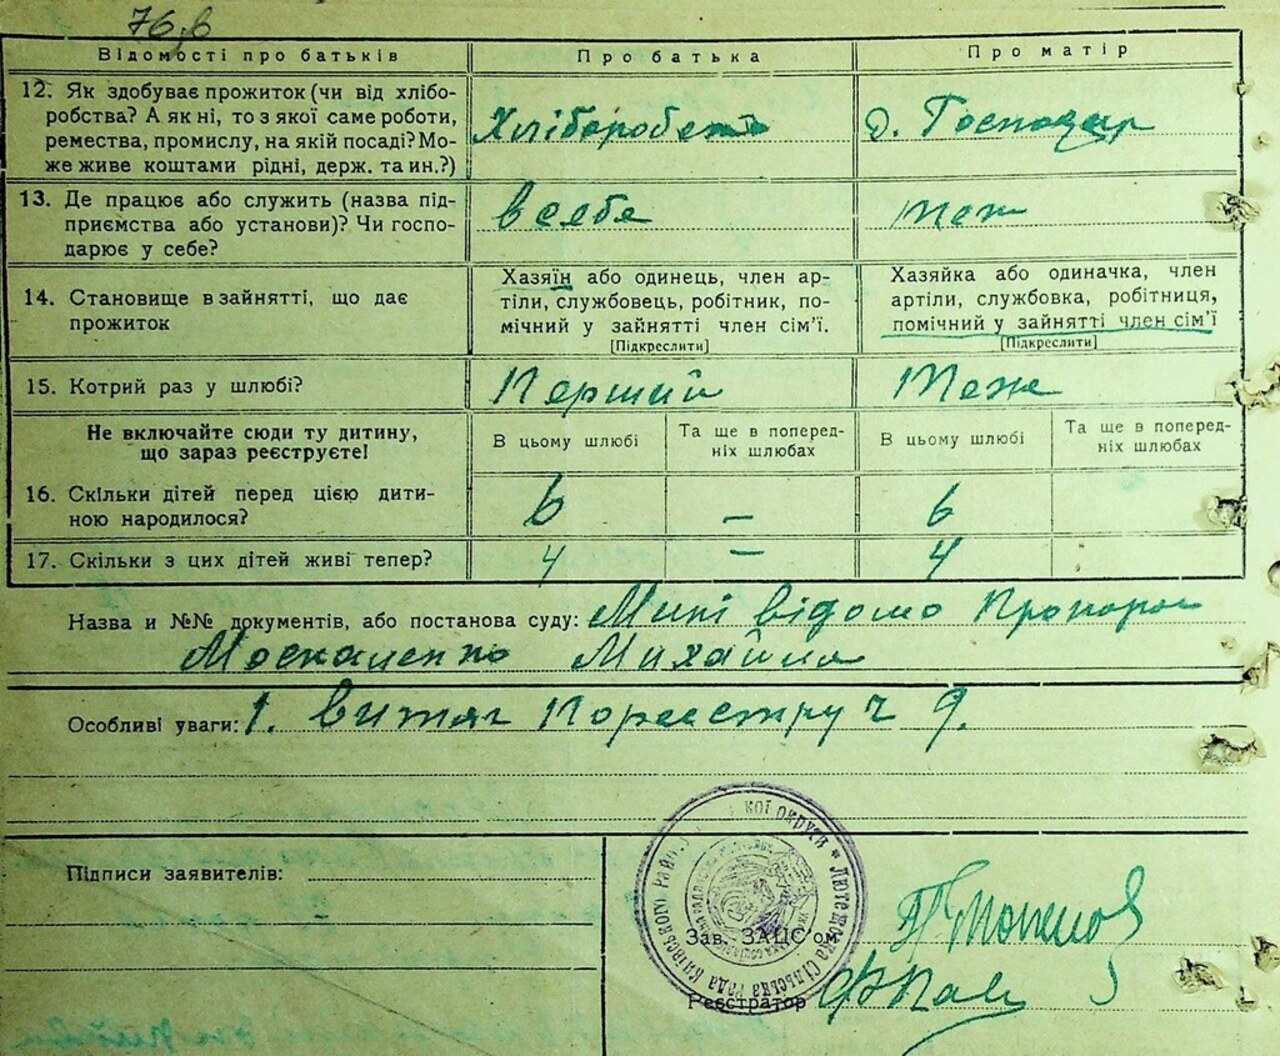 76,в
Відомості про батьків
Про батька
Про матір
12. Як здобуває прожиток (чи від хлібо-
робства? А як ні, то з якої саме роботи,
ремества, промислу, на якій посаді? Мо-
же живе коштами рідні, держ. та ин.?)
Хлібороб
д. Господар
13. Де працює або служить (назва під-
приємства або установи)? Чи госпо-
дарює у себе?
в себе
теж
14. Становище в зайнятті, що дає
прожиток
Хазяїн або одинець, член ар-
тіли, службовець, робітник, по-
мічний у зайнятті член сім'ї.
[Підкреслити]
Хазяйка або одиначка, член
артіли, службовка, робітниця,
помічний у зайнятті член сім'ї
[Підкреслити]
15. Котрий раз у шлюбі?
Перший
Теж
Не включайте сюди ту дитину,
що зараз реєструєте!
В цьому шлюбі
Та ще в поперед-
ніх шлюбах
В цьому шлюбі
Та ще в поперед-
ніх шлюбах
16. Скільки дітей перед цією дити-
ною народилося?
6
–
6
17. Скільки з цих дітей живі тепер?
4
–
4
Назва и №№ документів, або постанова суду: Мині відомо
Москаленко Михайла
Особливі уваги: 1. витяг По реестру ч 9.
Підписи заявителів:
кої округи * Лютежська сільська рада Київського Району
Зав. ЗАЦС'ом
Реєстратор